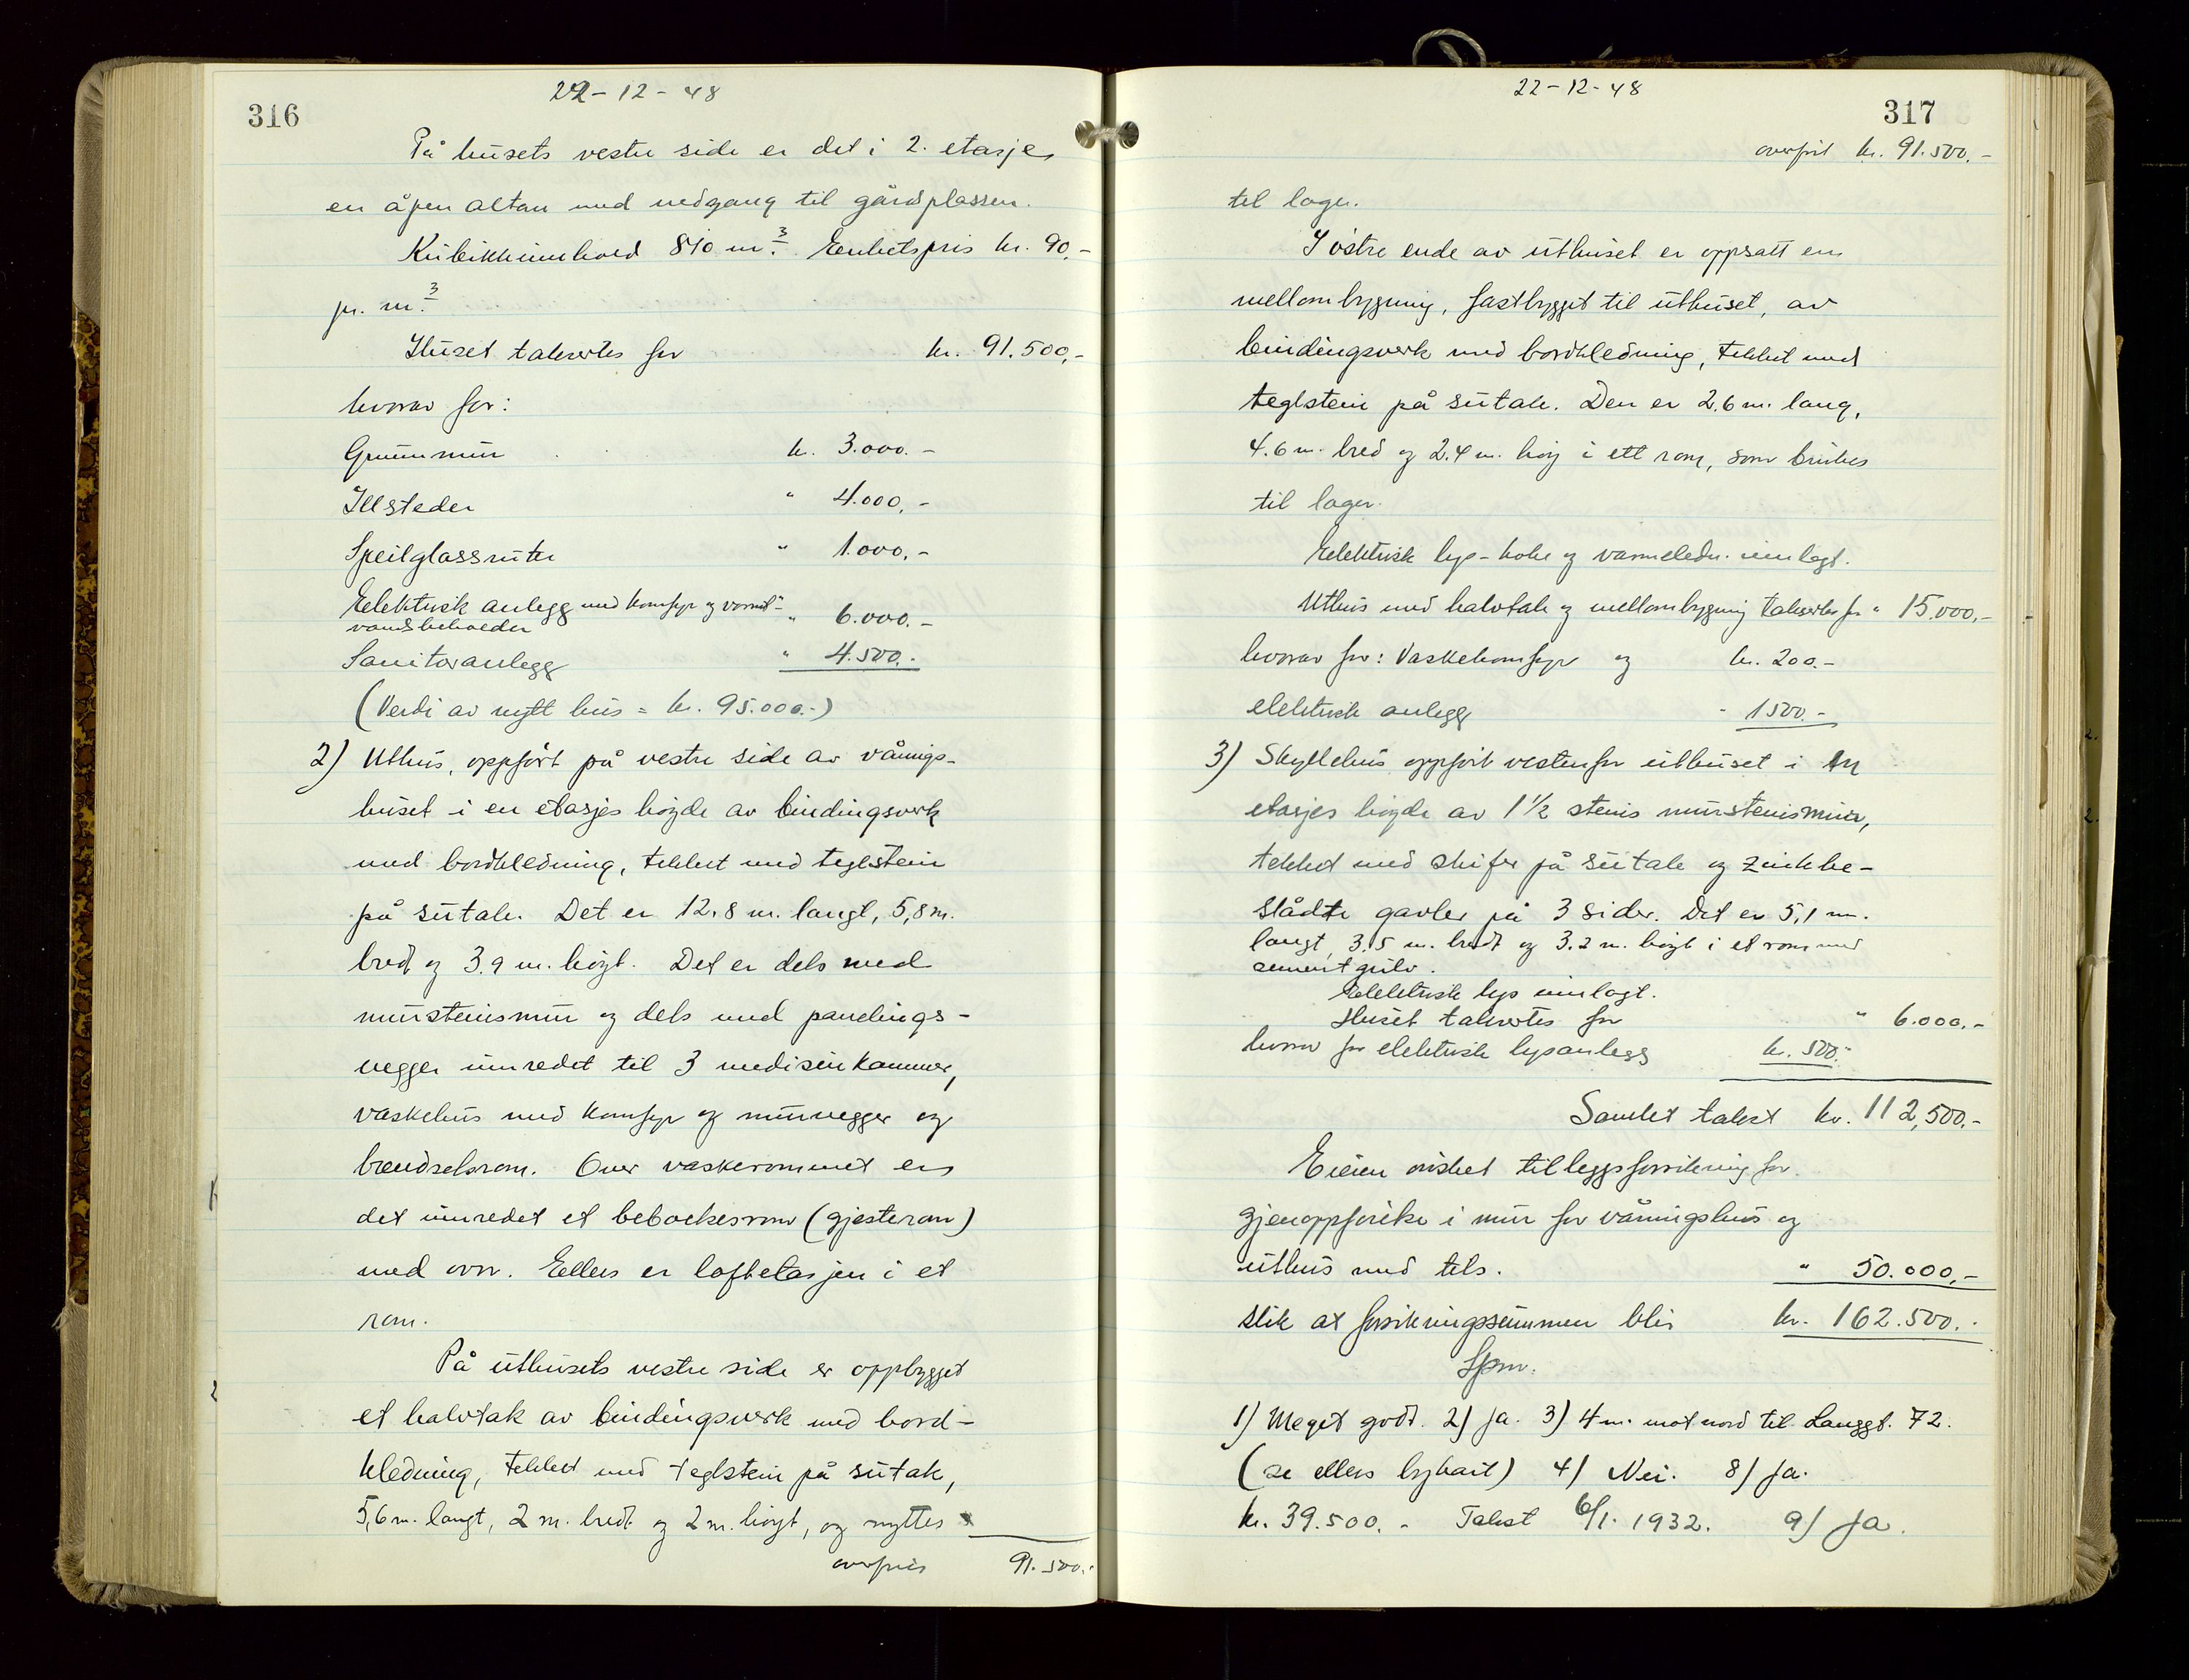 316
22-12-48
På husets vestre side er det i 2. etasje
en åpen altan med nedgang til gårdsplassen.
Kubikkinnhold 810 m³. Enhetspris kr. 90,-
pr. m³.
Huset takseres for kr. 91.500,-
hvorav for:
Grunnmur kr. 3.000.-
Illsteder " 4.000,-
Speilglassruter " 1.000,-
Elektrisk anlegg med komfyr og varmt-
vannsbeholder " 6.000.-
Sanitæranlegg " 4.500.-
(Verdi av nytt hus = kr. 95.000.-)
2) Uthus, oppført på vestre side av vånings-
huset i en etasjes høyde av bindingsverk
med bordkledning, tekket med teglstein
på sutak. Det er 12,8 m. langt, 5,8 m.
bredt og 3.9 m. høyt. Det er dels med
murstensmur og dels med panelings-
vegger innredet til 3 medisinkammer,
vaskehus med komfyr og murvegger og
brendselsrom. Over vaskerommet er
det innredet et beboelsesrom (gjesterom)
med ovn. Ellers er loftetasjen i et
rom.
På uthusets vestre side er oppbygget
et halvtak av bindingsverk med bord-
kledning, tekket med teglstein på sutak,
5,6 m. langt, 2 m. bredt og 2 m. høyt, og nyttes
overføres 91.500.-
22-12-48
317
overført kr. 91.500.-
til lager.
I østre ende av uthuset er oppsatt en
mellombygning, fastbygget til uthuset, av
bindingsverk med bordkledning, tekket med
teglstein på sutak. Den er 2.6 m. lang,
4.6 m. bred og 2.4 m. høy i ett rom, som brukes
til lager.
Elektrisk lys- koke og varmeledn. innlagt.
Uthus med halvtak og mellombygning takseres for " 15.000,-
hvorav for: Vaskekomfyr og kr. 200.-
elektrisk anlegg " 1500.-
3) Skyllehus oppført vestenfor uthuset i en
etasjes høyde av 1 1/2 stens murstensmur,
tekket med skifer på sutak og zinkbe-
slådte gavler på 3 sider. Det er 5,1 m.
langt, 3.5 m. bredt og 3.2 m. høyt i et rom med
sementgulv.
Elektrisk lys innlagt.
Huset takseres for " 6.000,-
hvorav for elektrisk lysanlegg kr. 500.-
Samlet takst kr. 112,500.-
Eieren ønsket tilleggsforsikring for
gjenoppførelse i mur for våningshus og
uthus med tils. " 50.000,-
slik at forsikringssummen blir kr. 162.500.-
Spm.
1) Meget godt. 2) Ja. 3) 4 m. mot nord til Langgt. 72.
(se ellers bykart) 4) Nei. 8) Ja.
kr. 39.500.- Takst 6/1. 1932. 9) Ja.